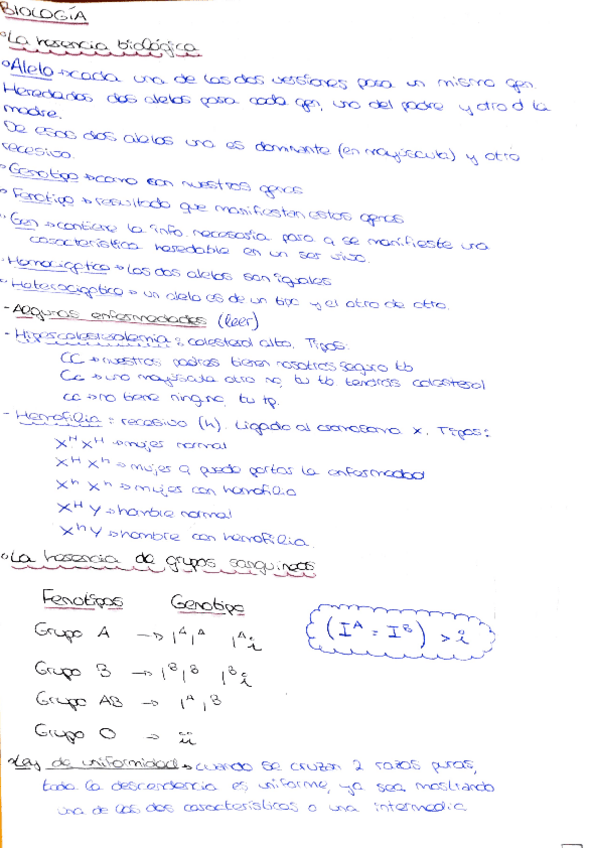 BIOLOGÍA
La herencia biológica
Alelo → cada una de las dos versiones para un mismo gen.
Heredarios dos alelos para cada gen, uno del padre y otro d la
madre.
De esos dos alelos uno es dominante (en mayúscula) y otro
recesivo.
Genotipo → como son nuestros genes
Fenotipo → resultado que manifiestan estos genes
Gen → contiene la info. necesaria para q se manifieste una
característica heredable en un ser vivo.
Homocigotico → los dos alelos son iguales
Heterocigotico → un alelo es de un tipo y el otro de otro.
- Algunas enfermedades (leer)
- Hipercolesterolemia: colesterol alto. Tipos:
CC → nuestros padres tienen nosotros seguro tb
Cc → una mayúscula otro no, tu tb tendrás colesterol
cc → no tiene ningno, tu tp.
- Hemofilia = recesivo (h). Ligado al cromosoma x. Tipos:
X^H X^H → mujer normal
X^H X^h → mujer q puede portar la enfermedad
X^h X^h → mujer con hemofilia
X^H Y → hombre normal
X^h Y → hombre con hemofilia.
La herencia de grupos sanguineos
Fenotipos Genotipo
Grupo A → I^A I^A I^A i
(I^A = I^B) > i
Grupo B → I^B I^B I^B i
Grupo AB → I^A I^B
Grupo O → ii
Ley de uniformidad → cuando se cruzan 2 razas puras,
toda la descendencia es uniforme, ya sea mostrando
una de las dos características o una intermedia